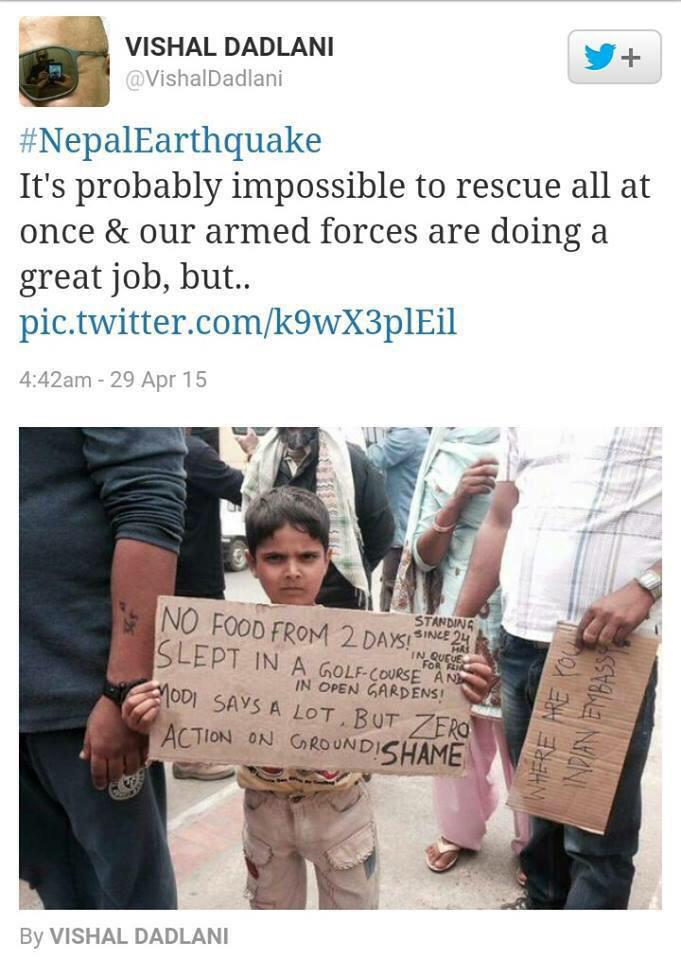 VISHAL DADLANI
@VishalDadlani
#NepalEarthquake
It's probably impossible to rescue all at
once & our armed forces are doing a
great job, but..
pic.twitter.com/k9wX3plEil
4:42am - 29 Apr 15
NO FOOD FROM 2 DAYS!
STANDING
SINCE 24
HRS
IN QUEUE
FOR
SLEPT IN A GOLF-COURSE AND
IN OPEN GARDENS!
MODI SAYS A LOT, BUT ZERO
ACTION ON GROUND! SHAME
WHERE ARE YOU
INDIAN EMBASSY
By VISHAL DADLANI